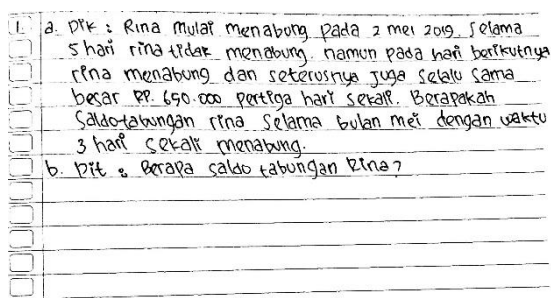 1. a. Dik : Rina mulai menabung pada 2 mei 2019. Selama
5 hari rina tidak menabung. namun pada hari berikutnya
rina menabung dan seterusnya juga selalu sama
besar RP. 650.000 pertiga hari sekali. Berapakah
Saldo tabungan rina selama bulan mei dengan waktu
3 hari sekali menabung.
b. Dit : Berapa saldo tabungan Rina?